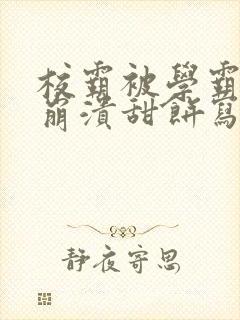 校霸被學霸
崩潰甜餅寫
靜夜寄思